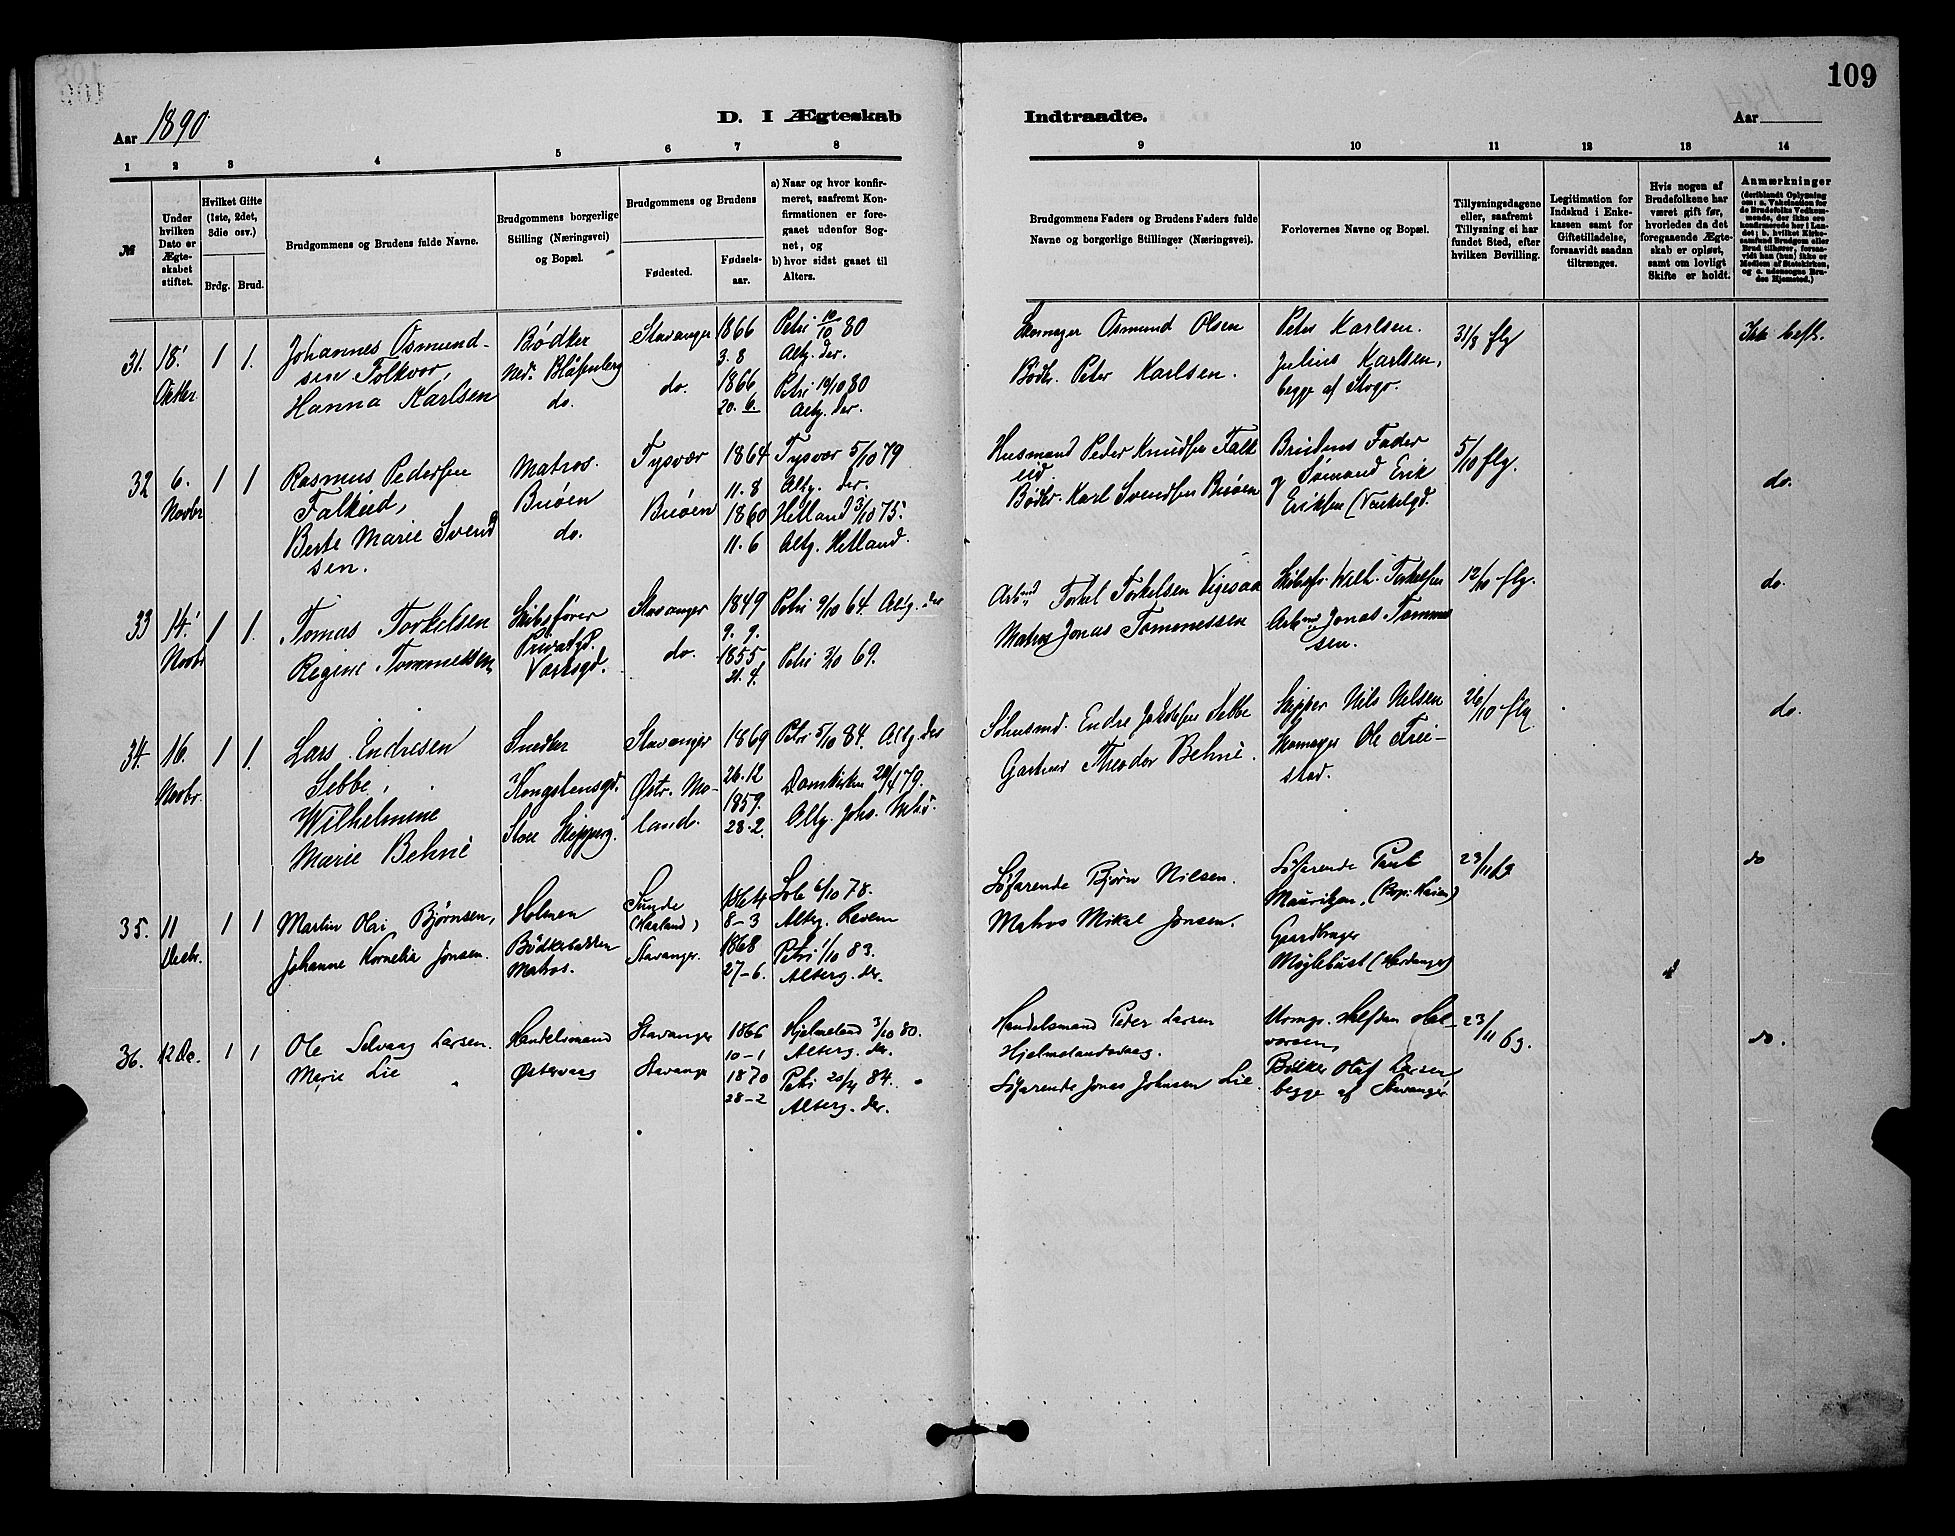 109
Aar 1890
D. I Ægteskab
Indtraadte.
Aar
1 2 3 4 5 6 7 8 9 10 11 12 13 14
№
Under hvilken Dato er Ægteskabet stiftet.
Hvilket Gifte (1ste, 2det, 3die osv.)
Brdg. Brud.
Brudgommens og Brudens fulde Navne.
Brudgommens borgerlige Stilling (Næringsvei) og Bopæl.
Brudgommens og Brudens
Fødested.
Fødselsaar.
a) Naar og hvor konfirmeret, saafremt Konfirmationen er foregaaet udenfor Sognet, og
b) hvor sidst gaaet til Alters.
Brudgommens Faders og Brudens Faders fulde Navne og borgerlige Stillinger (Næringsvei).
Forlovernes Navne og Bopæl.
Tillysningsdagene eller, saafremt Tillysning ei har fundet Sted, efter hvilken Bevilling.
Legitimation for Indskud i Enkekassen samt for Giftetilladelse, forsaavidt saadan tiltrænges.
Hvis nogen af Brudefolkene har været gift før, hvorledes da det foregaaende Ægteskab er opløst, samt om lovligt Skifte er holdt.
Anmærkninger
31. 18. Oktbr 1 1.
Johannes Osmund-
sen Tolkvor,
Hanna Karlsen
Bødker
Ned. Blåsenberg
do.
Stavanger
do.
1866
3. 8
1866
20. 6.
Petri 10/10 80
Altg. der.
Petri 10/10 80
Altg. der.
Osmund Olsen
Bødkr. Peter Karlsen.
Peter Karlsen.
Julius Karlsen,
begge af Stvgr.
31/8 flg
Ikke besl.
32 6. Novbr 1 1
Rasmus Pedersen
Falkeid,
Berte Marie Svend
sen.
Matros.
Buøen
do.
Tysvær
Buøen
1864
11. 8
1860
11. 6
Tysvær 5/10 79
Altg. der.
Hetland 3/10 75.
Altg. Hetland.
Husmand Peder Knudsen Falk
eid
Bødkr. Karl Svendsen Buøen
Brudens Fader
og Sømand Erik
Eriksen
5/10 flg.
do.
33 14. Novbr 1 1.
Tomas Torkelsen
Regine Tommessen
Skibsfører
Privatgd.
Værksgd.
Stavanger
do.
1849
9. 9.
1855
21. 9.
Petri 9/10 64. Altg. der
Petri 3/10 69.
Arbmd Torkel Torkelsen Vigesaa
Matros Jonas Tommessen
Skibsfr. Wilh. Torkelsen
Arbmd Jonas Tommes
sen.
12/10 flg.
do.
34. 16. Novbr. 1 1.
Lars Endresen
Sebbe,
Wilhelmine
Marie Behne
Snedker
Kongstensgd.
Store Skipperg.
Stavanger
Østr. Mo-
land.
1869
26. 12
1859.
28. 2.
Petri 5/10 84. Altg. der
Domkirken 20/4 79.
Altg. Johs.
Endre Jakobsen Sebbe
Gartner Theodor Behne.
Skipper Nils Nilsen
Skomager Ole Frei-
stad.
26/10 flg
do.
35. 11 Decbr. 1 1
Martin Olai Bjørnsen,
Johanne Kornelia Jonsen.
Holmen
Bødkerbakken
Matros.
Sunde
(Haaland)
Stavanger.
1864
8-3
1868
27-6.
Sole 6/10 78.
Alterg.
Petri 1/10 83.
Alterg. der.
Søfarende Bjørn Nilsen.
Matros Mikal Jonsen.
Søfarende Paul
Mauritzen,
Gaardbruger
Møglebust (Hardanger)
23/11 flg
do
36. 12 Do. 1 1
Ole Selvaag Larsen.
Marie Lie
Handelsmand
Østervaag
Stavanger
Stavanger
1866
10-1
1870
28-2
Hjelmeland 3/10 80.
Alterg. der.
Petri 20/4 84.
Alterg. der.
Handelsmand Peder Larsen
Hjelmelandsvaag.
Søfarende Jonas Johnsen Lie
Urmgr. Halfdan Hal-
vorsen,
Bødker Olaf Larsen
begge af Stavanger
23/11 63.
do.